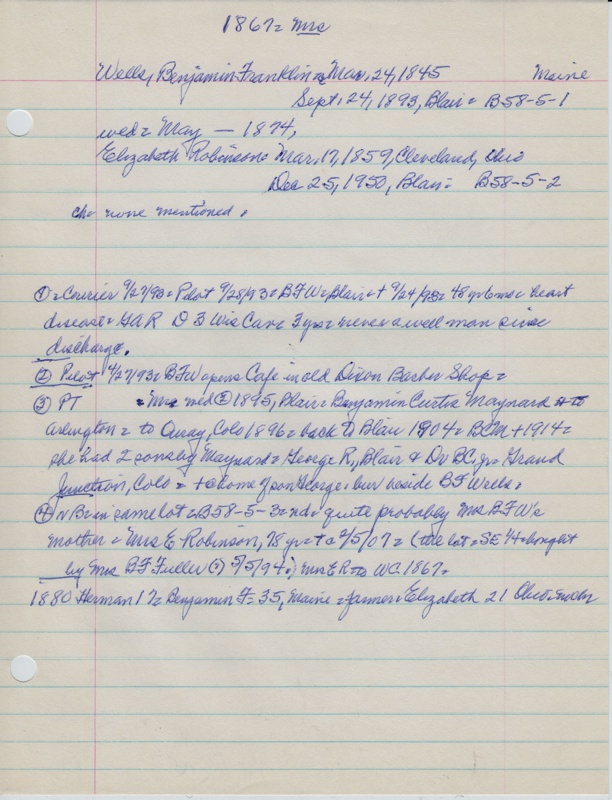 1867= Mrs
Wells, Benjamin Franklin= Mar, 24, 1845 Maine
Sept, 24, 1893, Blair= B58-5-1
wed= May — 1874,
Elizabeth Robinson= Mar, 17, 1859, Cleveland, Ohio
Dec 25, 1950, Blair= B58-5-2
ch= none mentioned.
① = Courier 9/27/93= Pilot 9/28/93= BFW= Blair= + 9/24/93= 48 yr 6 mo= heart
disease= GAR D 3 Wis Cav= 3 yrs= never a well man since
discharge.
② Pilot 4/27/93= BFW opens Cafe in old Dixon Barber Shop=
③ PT = Mrs wed ② 1895, Blair= Benjamin Curtis Maynard = to
Arlington= to Ouray, Colo 1896= back to Blair 1904= BCM + 1914=
she had 2 sons by Maynard= George R, Blair & Dr BC, Jr= Grand
Junction, Colo= + @ home of son George= bur beside BF Wells.
④ N Bur in same lot= B58-5-3= nd= quite probably Mrs BFW's
mother= Mrs E Robinson, 78 yr= + c 2/5/07= (the lot= SE 1/4= bought
by Mrs BF Fuller (?) 5/5/94=) Mrs ER to WC 1867=
1880 Herman 17= Benjamin F= 35, Maine= farmer= Elizabeth 21 Ohio=